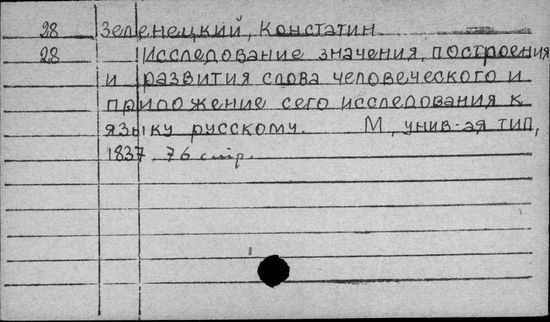 28 Зеленецкий, Констатин
28 Исследование значения, построения
и развития слова человеческого и
приложение сего исследования к
языку русскому. М, унив-ая тип,
1837. 76 стр.